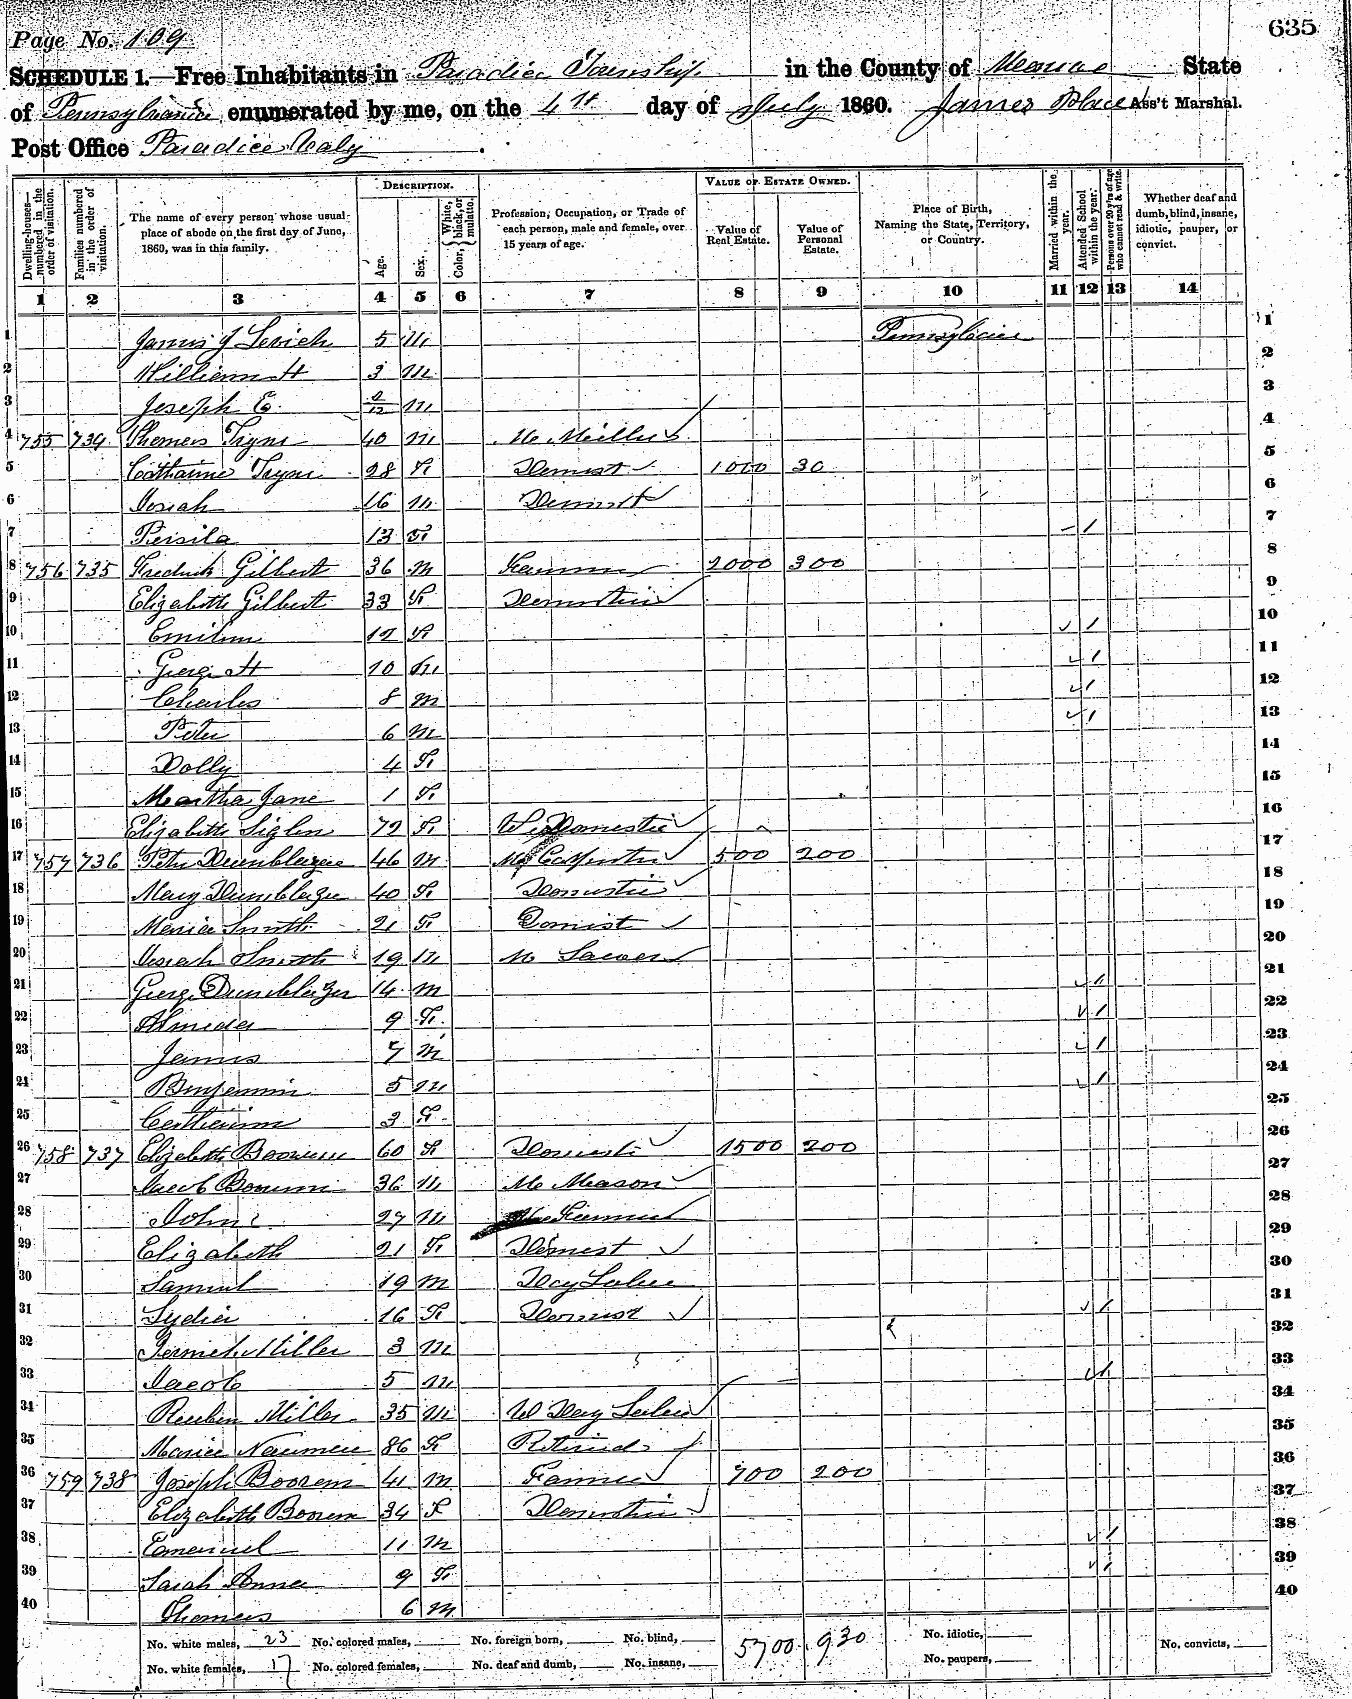 635
Page No. 109
SCHEDULE 1.—Free Inhabitants in Paradice Township in the County of Monroe State
of Pennsylvania enumerated by me, on the 4th day of July 1860. James Place Ass't Marshal.
Post Office Paradice Valy
Dwelling-houses—numbered in the order of visitation.
Families numbered in the order of visitation.
The name of every person whose usual place of abode on the first day of June, 1860, was in this family.
DESCRIPTION.
Age.
Sex.
Color, { White, black, or mulatto.
Profession, Occupation, or Trade of each person, male and female, over 15 years of age.
VALUE OF ESTATE OWNED.
Value of Real Estate.
Value of Personal Estate.
Place of Birth, Naming the State, Territory, or Country.
Married within the year.
Attended School within the year.
Persons over 20 y'rs of age who cannot read & write.
Whether deaf and dumb, blind, insane, idiotic, pauper, or convict.
1 2 3 4 5 6 7 8 9 10 11 12 13 14
1 James J 5 M Pennsylvania 1
2 William H 3 M 2
3 Joseph E. M 3
4 755 734 Thomas 40 M M Miller 4
5 Catharine Tryon 28 F Domest 1000 30 5
6 Josiah 16 M Domest 6
7 Persila 13 F 1 7
8 756 735 Fredrick Gilbert 36 M Farmer 2000 300 8
9 Elizabeth Gilbert 33 F Domestic 9
10 12 F 1 10
11 George H 10 M 1 11
12 Charles 8 M 1 12
13 Peter 6 M 1 13
14 Dolly 4 F 14
15 Martha Jane 1 F 15
16 Elizabeth 72 F Domestic 16
17 757 736 Peter 46 M Carpenter 500 200 17
18 Mary 40 F Domestic 18
19 Maria Smith 21 F Domist 19
20 Josiah Smith 19 M M 20
21 George 14 M 1 21
22 Almeda 9 F 1 22
23 James 7 M 1 23
24 Benjamin 5 M 1 24
25 Catharine 3 F 25
26 758 737 Elizabeth 60 F Domestic 1500 200 26
27 Jacob 36 M M Mason 27
28 John 27 M Farmer 28
29 Elizabeth 21 F Domest 29
30 Samuel 19 M Day Labor 30
31 Lydia 16 F Domest 1 31
32 Miller 3 M 32
33 Jacob 5 M 1 33
34 Reuben Miller 35 M W Day Labor 34
35 86 F Retired 35
36 759 738 Joseph Boorem 41 M Farmer 700 200 36
37 Elizabeth Boorem 34 F Domestic 37
38 Emanuel 11 M 1 38
39 Sarah Anna 9 F 1 39
40 Thomas 6 M 40
No. white males, 23 No. colored males, No. foreign born, No. blind, 5700 930 No. idiotic, No. convicts,
No. white females, 17 No. colored females, No. deaf and dumb, No. insane, No. paupers,